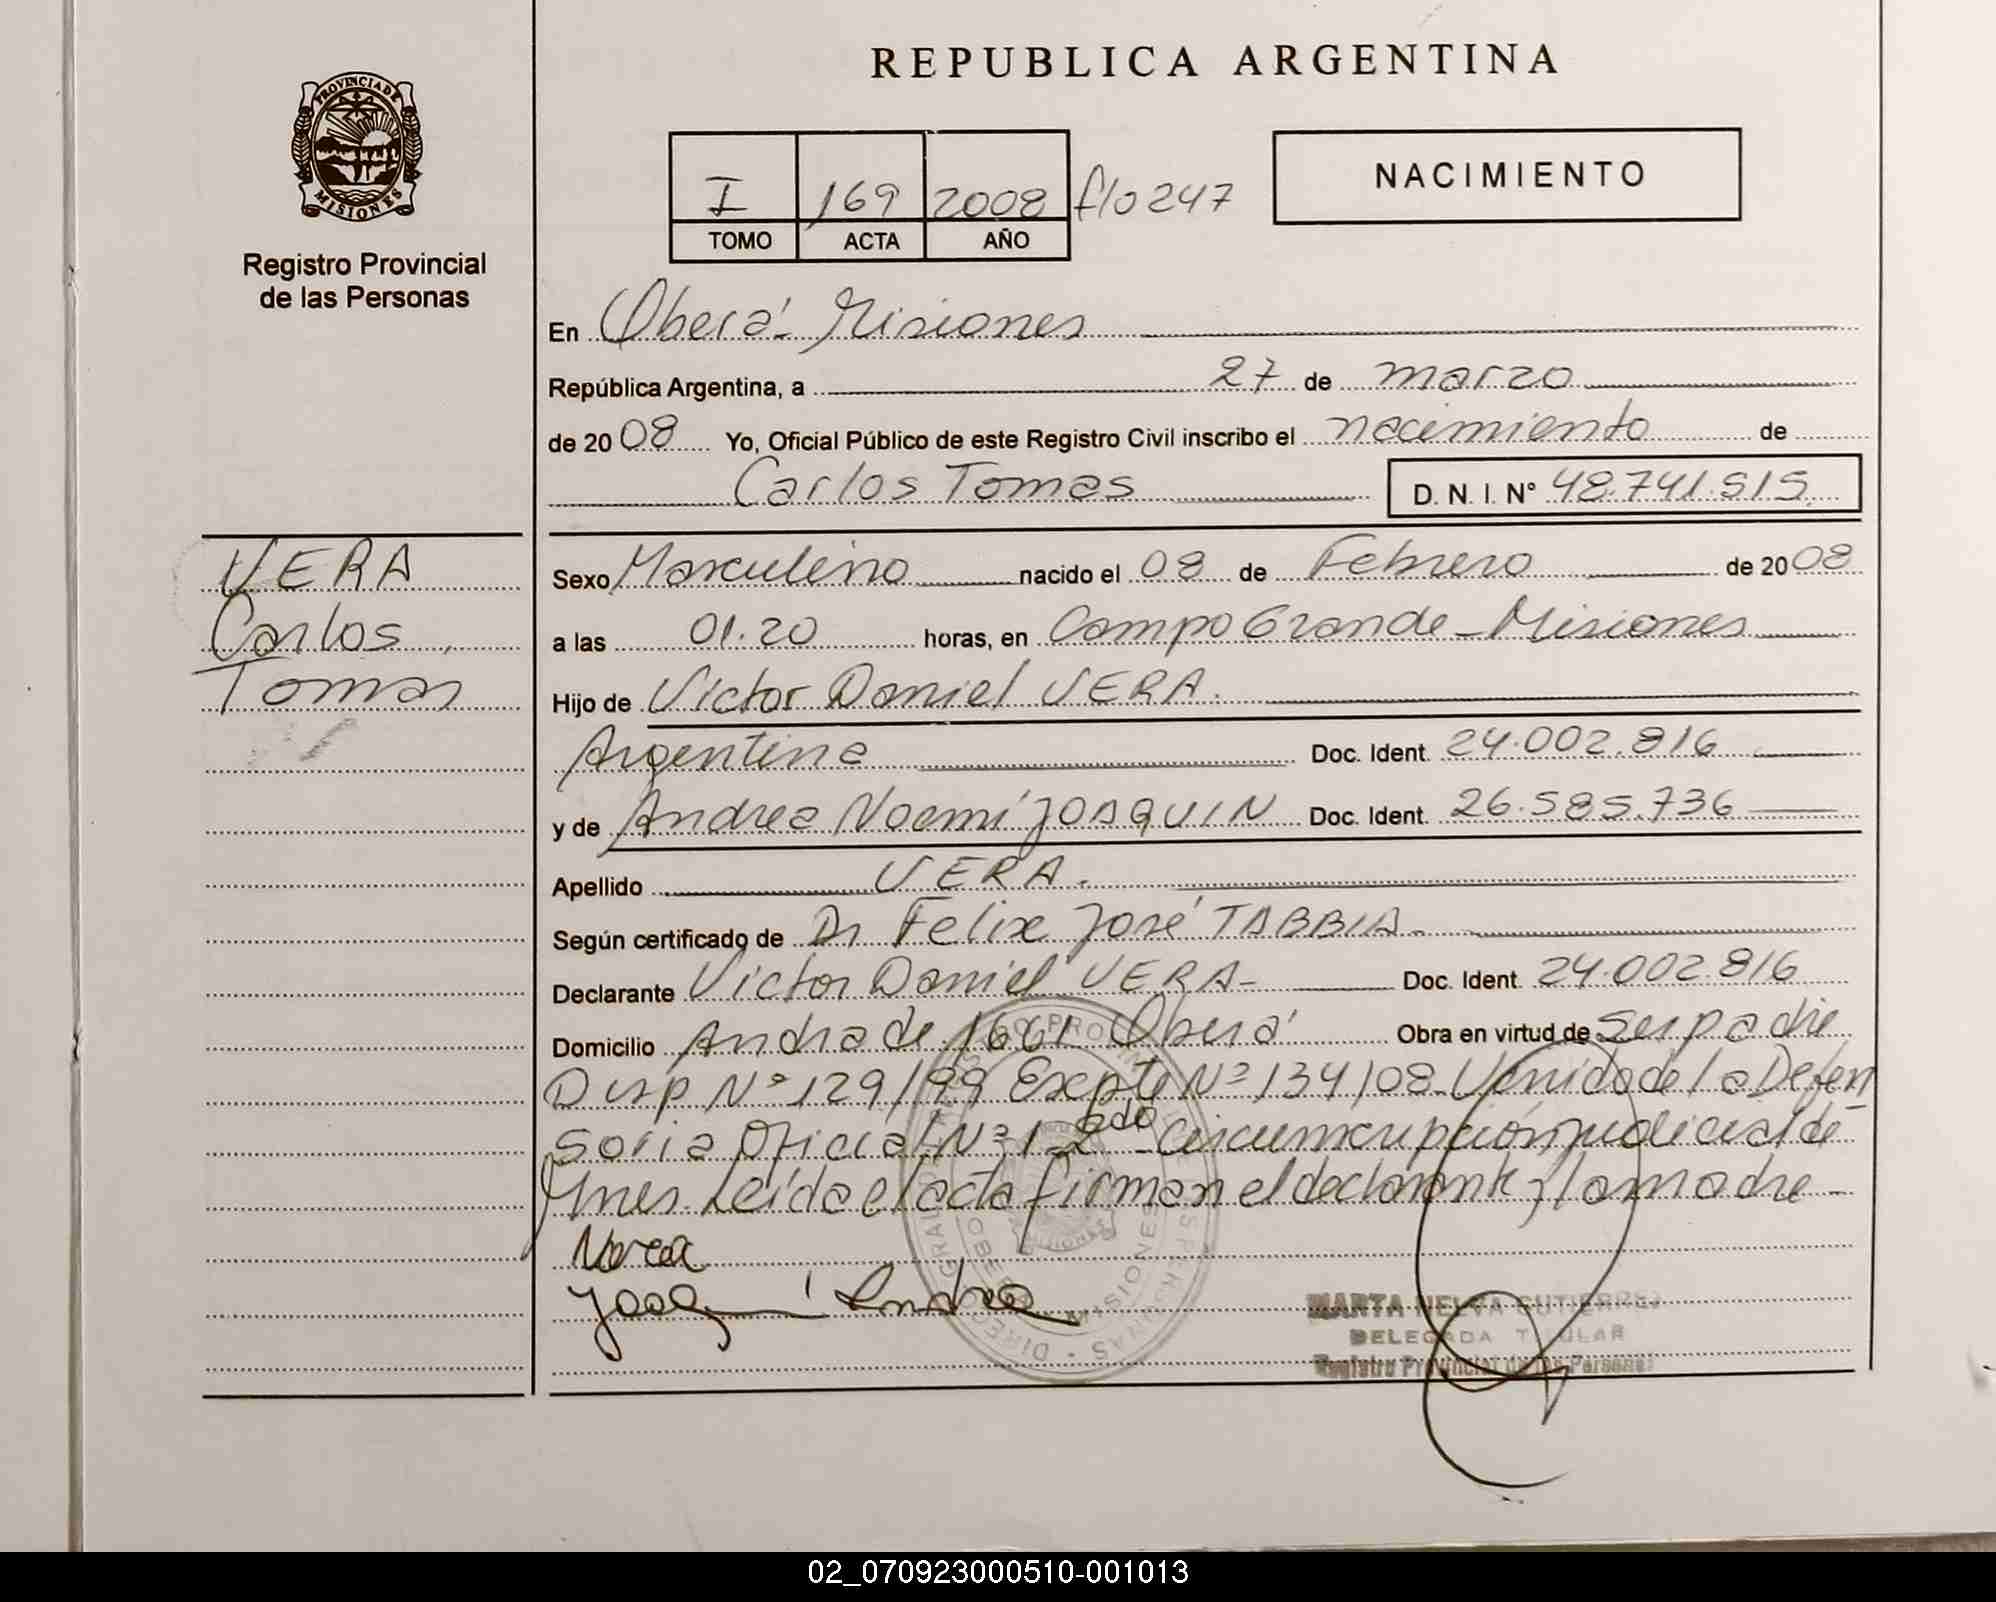 REPUBLICA ARGENTINA
PROVINCIA DE MISIONES
Registro Provincial
de las Personas
I 169 2008 f/o 247
TOMO ACTA AÑO
NACIMIENTO
En Oberá - Misiones
República Argentina, a 27 de marzo
de 2008 Yo, Oficial Público de este Registro Civil inscribo el nacimiento de
Carlos Tomas D. N. I. N° 48.741.515
VERA
Carlos
Tomas
Sexo Masculino nacido el 08 de Febrero de 2008
a las 01.20 horas, en Campo Grande - Misiones
Hijo de Victor Daniel VERA.
Argentina Doc. Ident. 24.002.816
y de Andrea Noemí JOAQUIN Doc. Ident. 26.585.736
Apellido VERA.
Según certificado de Dr Felix José TABBIA.
Declarante Victor Daniel VERA - Doc. Ident. 24.002.816
Domicilio Andrade 1661 Oberá Obra en virtud de ser padre
Disp N° 129/99 Expte N° 134/08 - Venido de la Defen
soria Oficial N° 1 - 2da Circunscripción judicial de
Mnes. Leída el acta firman el declarante y la madre -
Joaquin Andrea
MARTA NELVA GUTIERREZ
DELEGADA TITULAR
Registro Provincial de las Personas
02_070923000510-001013